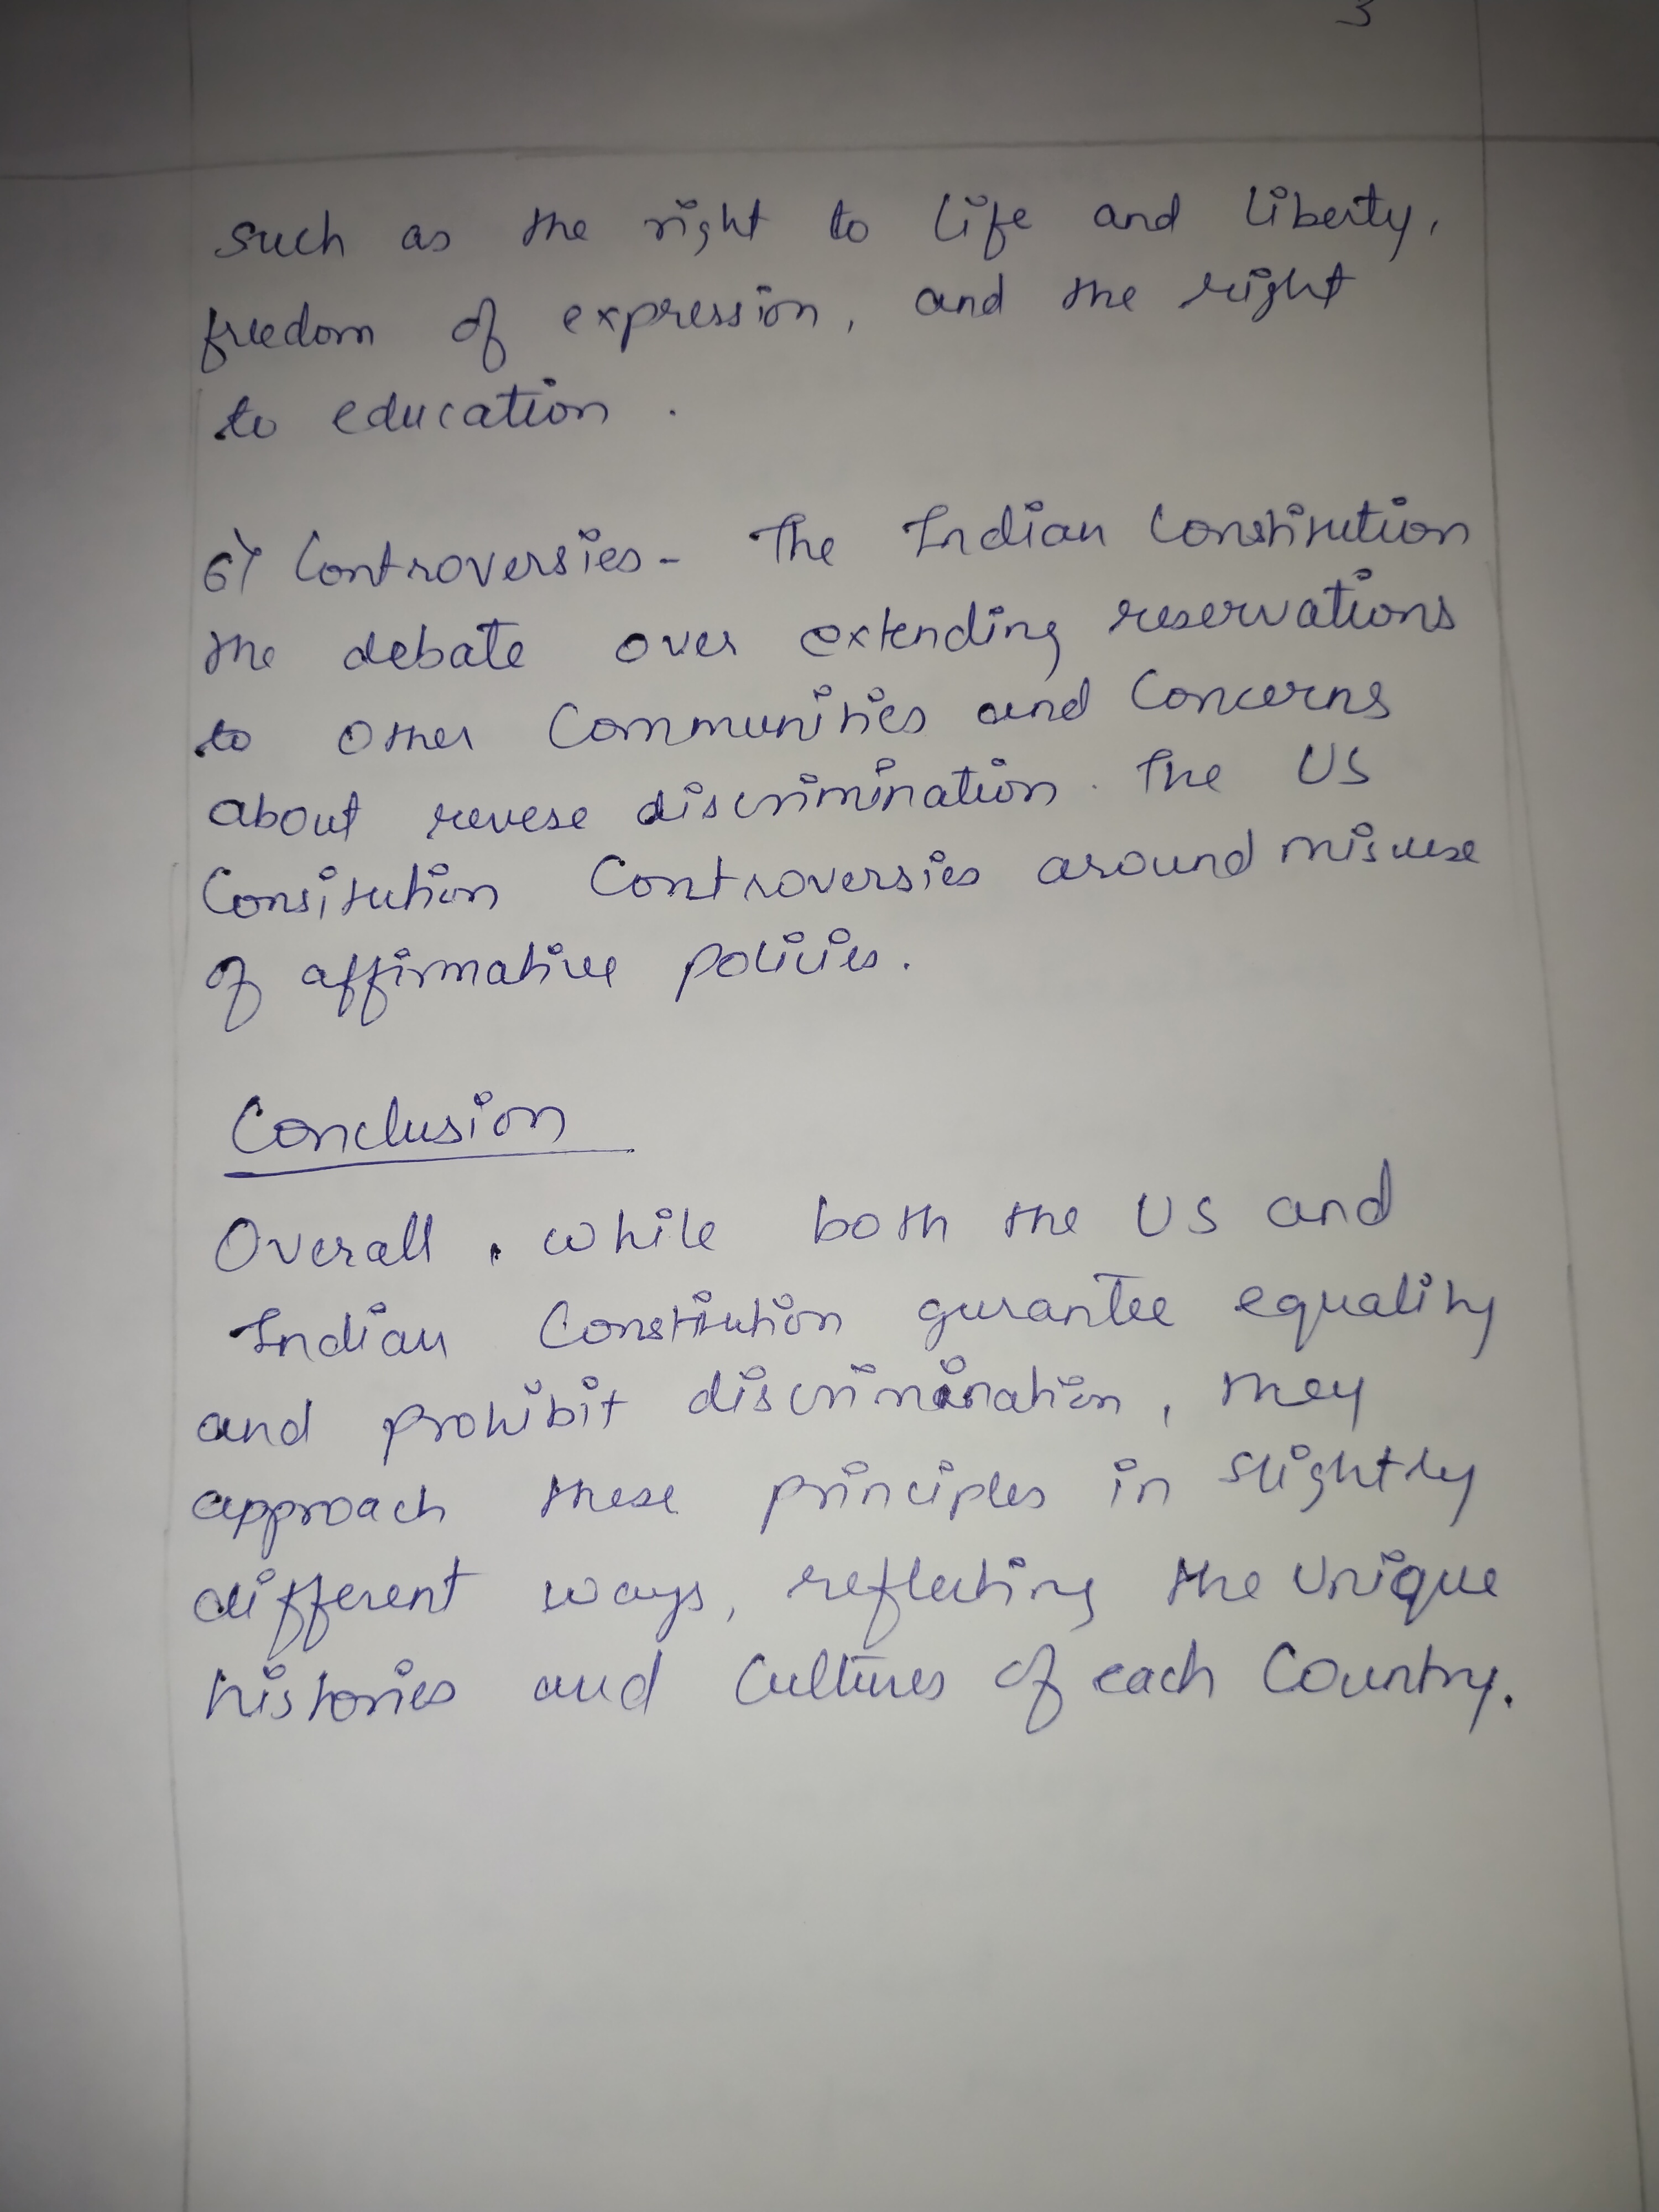 3
such as the right to life and liberty,
freedom of expression, and the right
to education .
6) Controversies - The Indian Constitution
the debate over extending reservations
to other Communities and Concerns
about revese discrimination. The US
Consitution Controversies around misuse
of affirmative policies.
Conclusion
Overall, while both the US and
Indian Constitution gurantee equality
and prohibit discrimination, they
approach these principles in slightly
different ways, reflecting the unique
histories and Cultures of each Country.